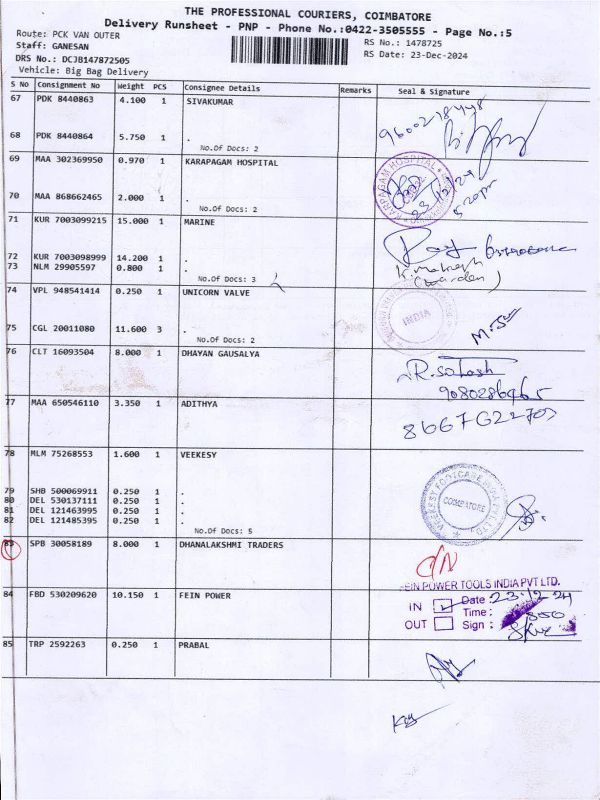 THE PROFESSIONAL COURIERS, COIMBATORE
Delivery Runsheet - PNP - Phone No.:0422-3505555 - Page No.:5
Route: PCK VAN OUTER
Staff: GANESAN
RS No.: 1478725
DRS No.: DCJB147872505
RS Date: 23-Dec-2024
Vehicle: Big Bag Delivery
S No Consignment No Weight PCS Consignee Details Remarks Seal & Signature
67 PDK 8440863 4.100 1 SIVAKUMAR
68 PDK 8440864 5.750 1 .
No.Of Docs: 2
69 MAA 302369950 0.970 1 KARAPAGAM HOSPITAL
KARPAGAM HOSPITAL
23/12/24
5.20pm
70 MAA 868662465 2.000 1 .
No.Of Docs: 2
71 KUR 7003099215 15.000 1 MARINE
72 KUR 7003098999 14.200 1 .
73 NLM 29905597 0.800 1 .
No.Of Docs: 3
(Warden)
74 VPL 948541414 0.250 1 UNICORN VALVE
INDIA
75 CGL 20011080 11.600 3 .
No.Of Docs: 2
76 CLT 16093504 8.000 1 DHAYAN GAUSALYA
R.Satosh
9080286465
77 MAA 650546110 3.350 1 ADITHYA
8667622703
78 MLM 75268553 1.600 1 VEEKESY
VEEKESY FOOTCARE INDIA PVT LTD
COIMBATORE
79 SHB 500069911 0.250 1 .
80 DEL 530137111 0.250 1 .
81 DEL 121463995 0.250 1 .
82 DEL 121485395 0.250 1 .
No.Of Docs: 5
83 SPB 30058189 8.000 1 DHANALAKSHMI TRADERS
84 FBD 530209620 10.150 1 FEIN POWER
FEIN POWER TOOLS INDIA PVT LTD.
IN Date 23.12.24
Time:
OUT Sign :
85 TRP 2592263 0.250 1 PRABAL